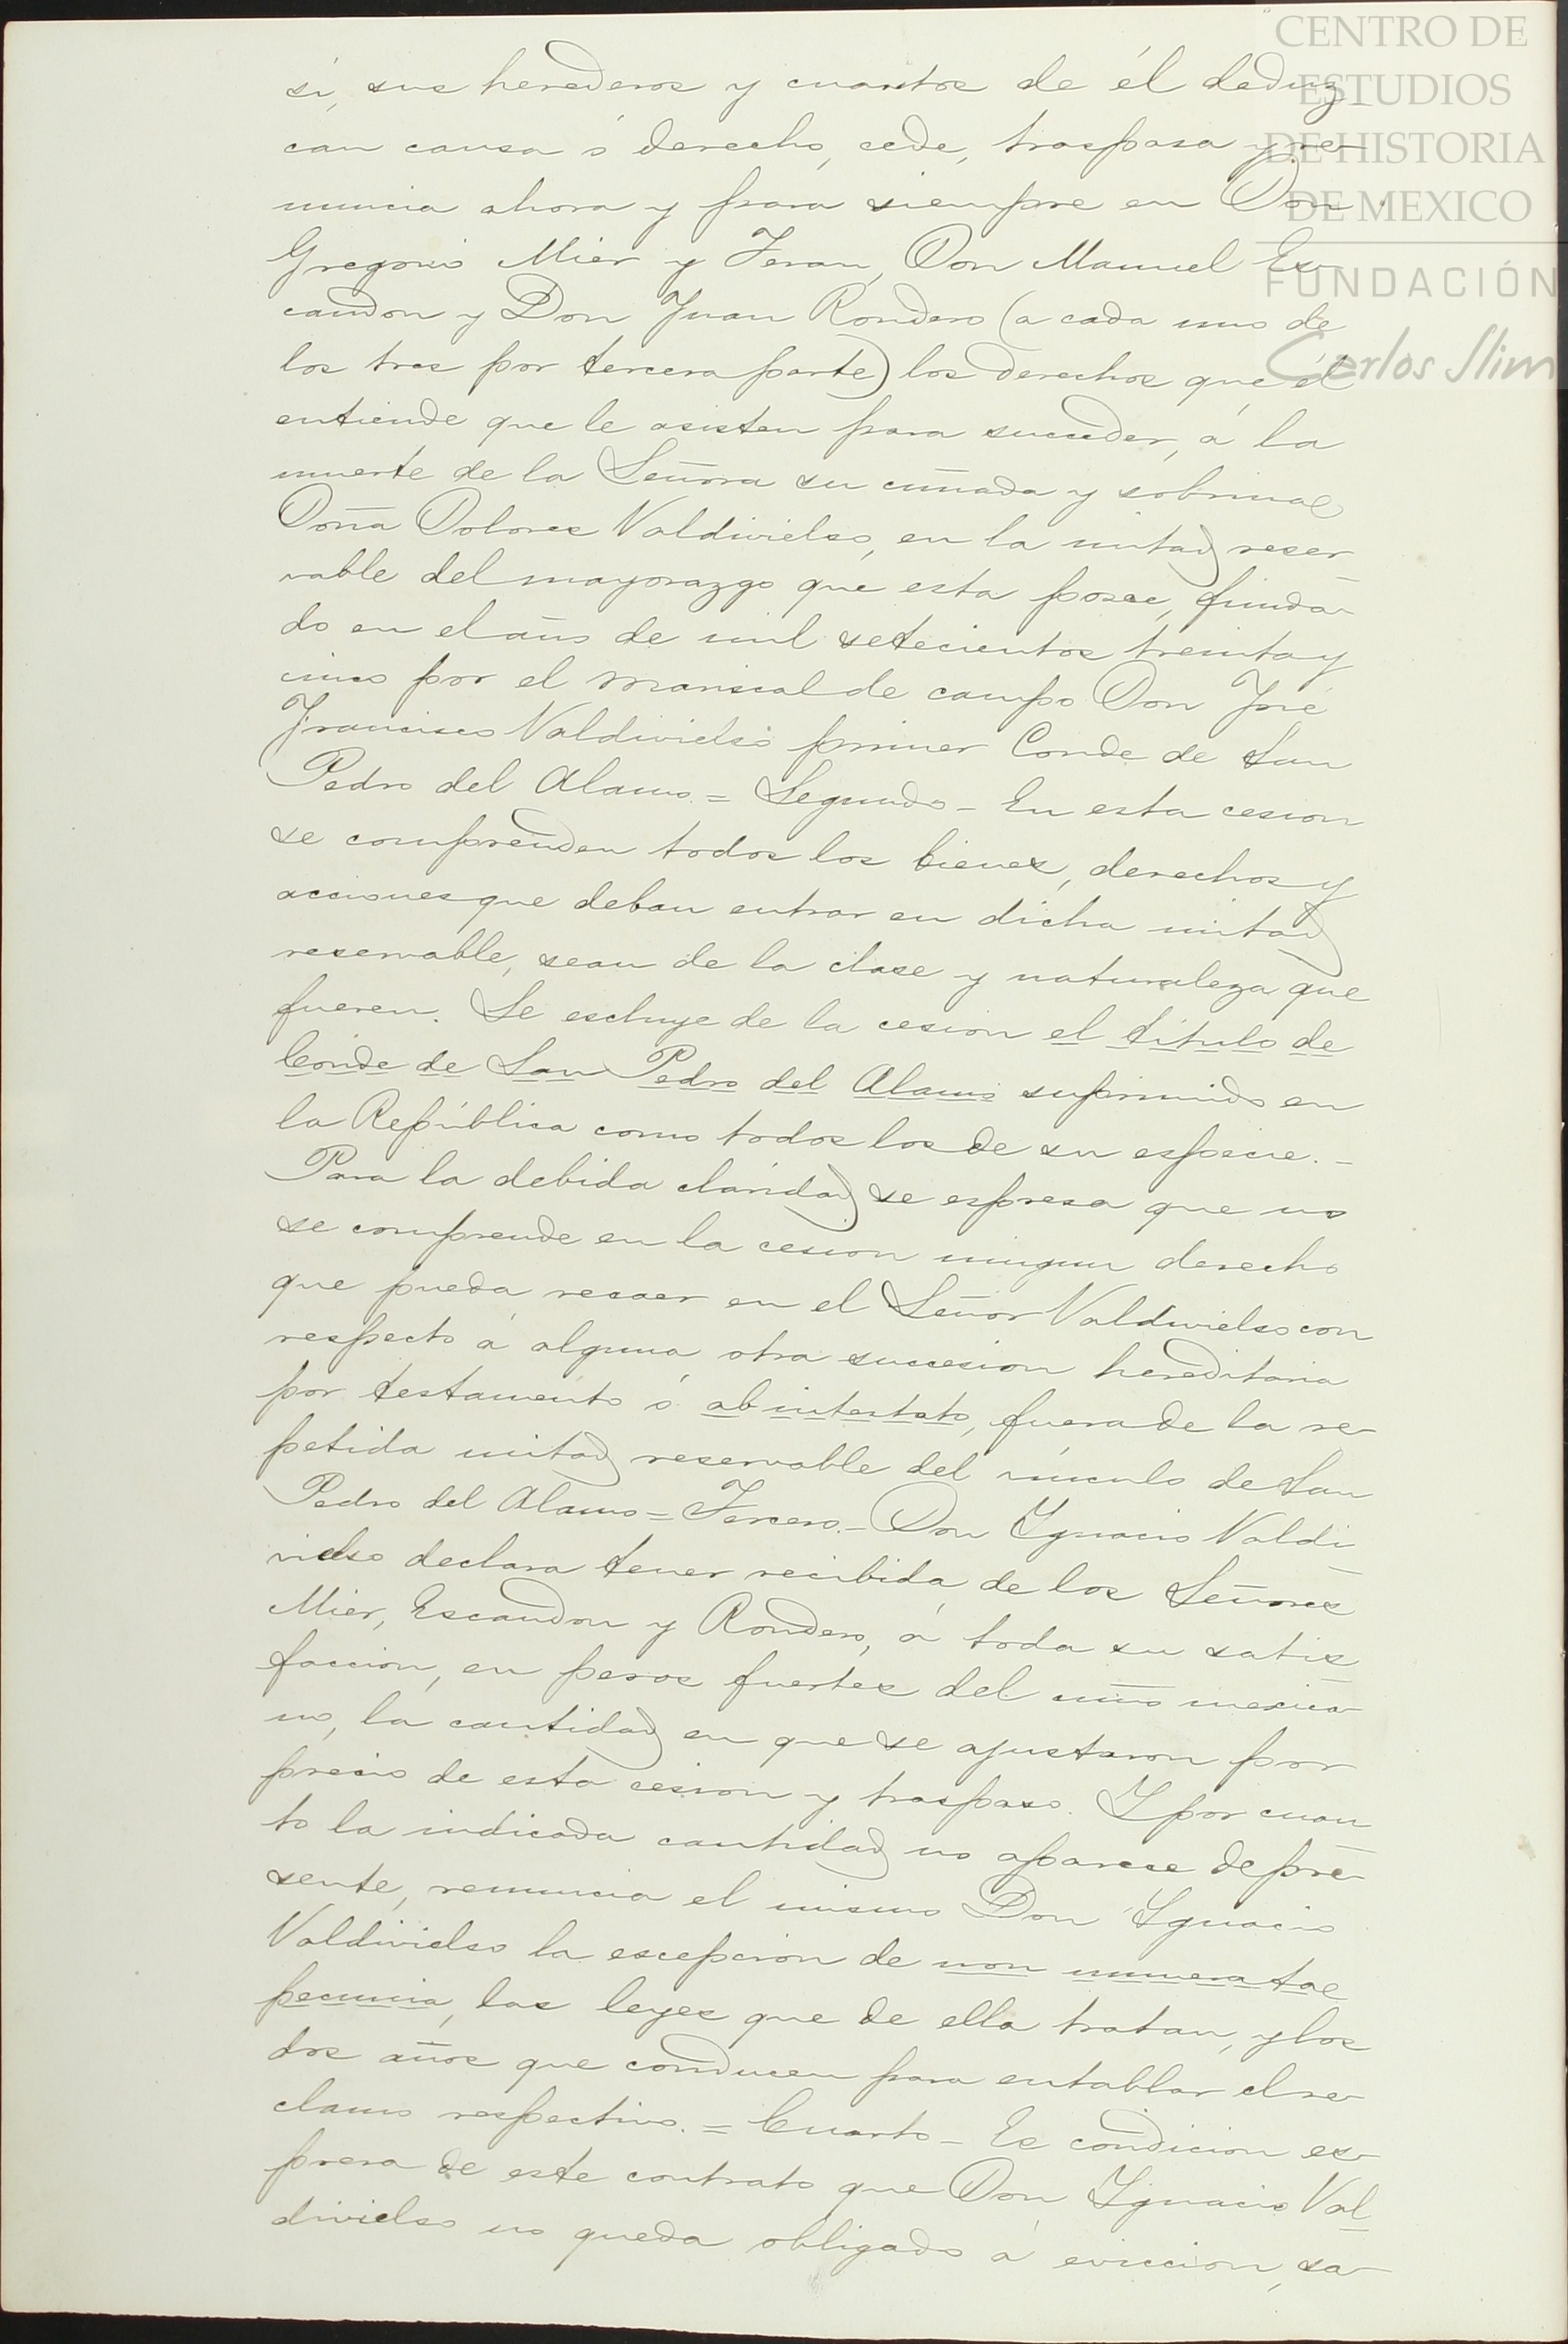 CENTRO DE
ESTUDIOS
DE HISTORIA
DE MEXICO
FUNDACIÓN
Carlos Slim
sí, sus herederos y cuantos de él deduz-
can causa ó derecho, cede, traspasa y re-
nuncia ahora y para siempre en Don
Gregorio Mier y Teran, Don Manuel Es-
candon y Don Juan Rondero (a cada uno de
los tres por tercera parte) los derechos que él
entiende que le asisten para succeder, á la
muerte de la Señora su cuñada y sobrina
Doña Dolores Valdivielso, en la mitad reser
vable del mayorazgo que esta posee, funda-
do en el año de mil setecientos treinta y
cinco por el mariscal de campo Don José
Francisco Valdivielso primer Conde de San
Pedro del Alamo. = Segundo - En esta cesion
se comprenden todos los bienes, derechos y
acciones que deban entrar en dicha mitad
reservable, sean de la clase y naturaleza que
fueren. Se escluye de la cesion el título de
Conde de San Pedro del Alamo suprimido en
la República como todos los de su especie. -
Para la debida claridad se espresa que no
se comprende en la cesion ningun derecho
que pueda recaer en el Señor Valdivielso con
respecto á alguna otra succesion hereditaria
por testamento ó abintestato, fuera de la re-
petida mitad reservable del vínculo de San
Pedro del Alamo = Tercero. - Don Ygnacio Valdi-
vielso declara tener recibida de los Señores
Mier, Escandon y Rondero, á toda su satis-
faccion, en pesos fuertes del cuño mexica-
no, la cantidad en que se ajustaron por
precio de esta cesion y traspaso. Y por cuan
to la indicada cantidad no aparece de pre-
sente, renuncia el mismo Don Ygnacio
Valdivielso la escepcion de non numeratae
pecunia, las leyes que de ella tratan, y los
dos años que conducen para entablar el re-
clamo respectivo. = Cuarto - Es condicion es-
presa de este contrato que Don Ygnacio Val-
divielso no queda obligado á eviccion, sa-